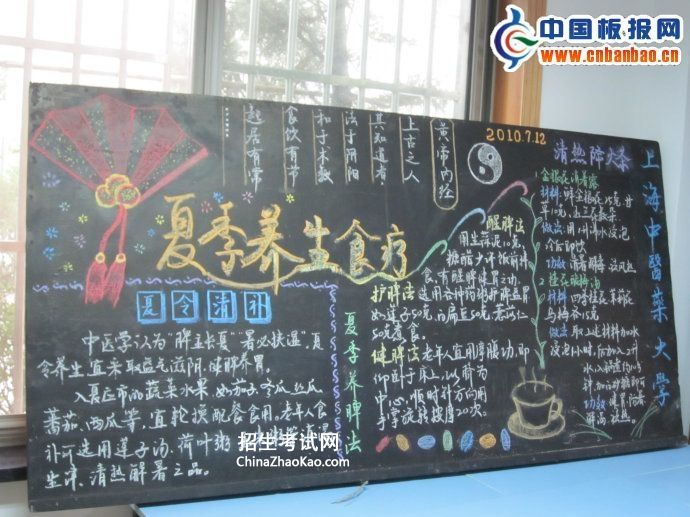 中国板报网
www.cnbanbao.cn
2010.7.12
黄帝内经
上古之人
其知道者
法于阴阳
和于术数
食饮有节
起居有常
夏季养生食疗
夏令清补
中医学认为"脾主长夏""暑必挟湿",夏
令养生宜采取益气滋阴,健脾养胃。
入夏应市的蔬菜水果如茄子冬瓜丝瓜
番茄、西瓜等,宜轮换配餐食用。老年人食
补可选用莲子汤、荷叶粥
生津,清热解暑之品。
夏季养脾法
醒脾法
用生蒜泥10克,
糖醋少许饭前
食,有醒脾健胃之功。
护脾法 选用各种药粥护脾益胃
如莲子50克,白扁豆50克,薏米仁
50克煮食。
健脾法 老年人宜用摩腹功,即
仰卧于床上,以脐为
中心,顺时针方向用
手掌旋转按摩20次。
清热降火茶
1.金银花冰茶露
做法
功效
材料
做法 取上述材料加水
功效 健胃
上海中醫藥大學
招生考试网
ChinaZhaoKao.com